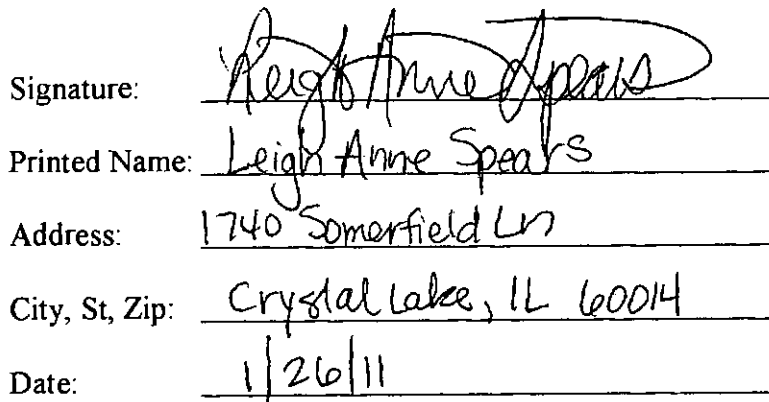 Signature: Leigh Anne Spears
Printed Name: Leigh Anne Spears
Address: 1740 Somerfield Ln
City, St, Zip: Crystal Lake, IL 60014
Date: 1/26/11